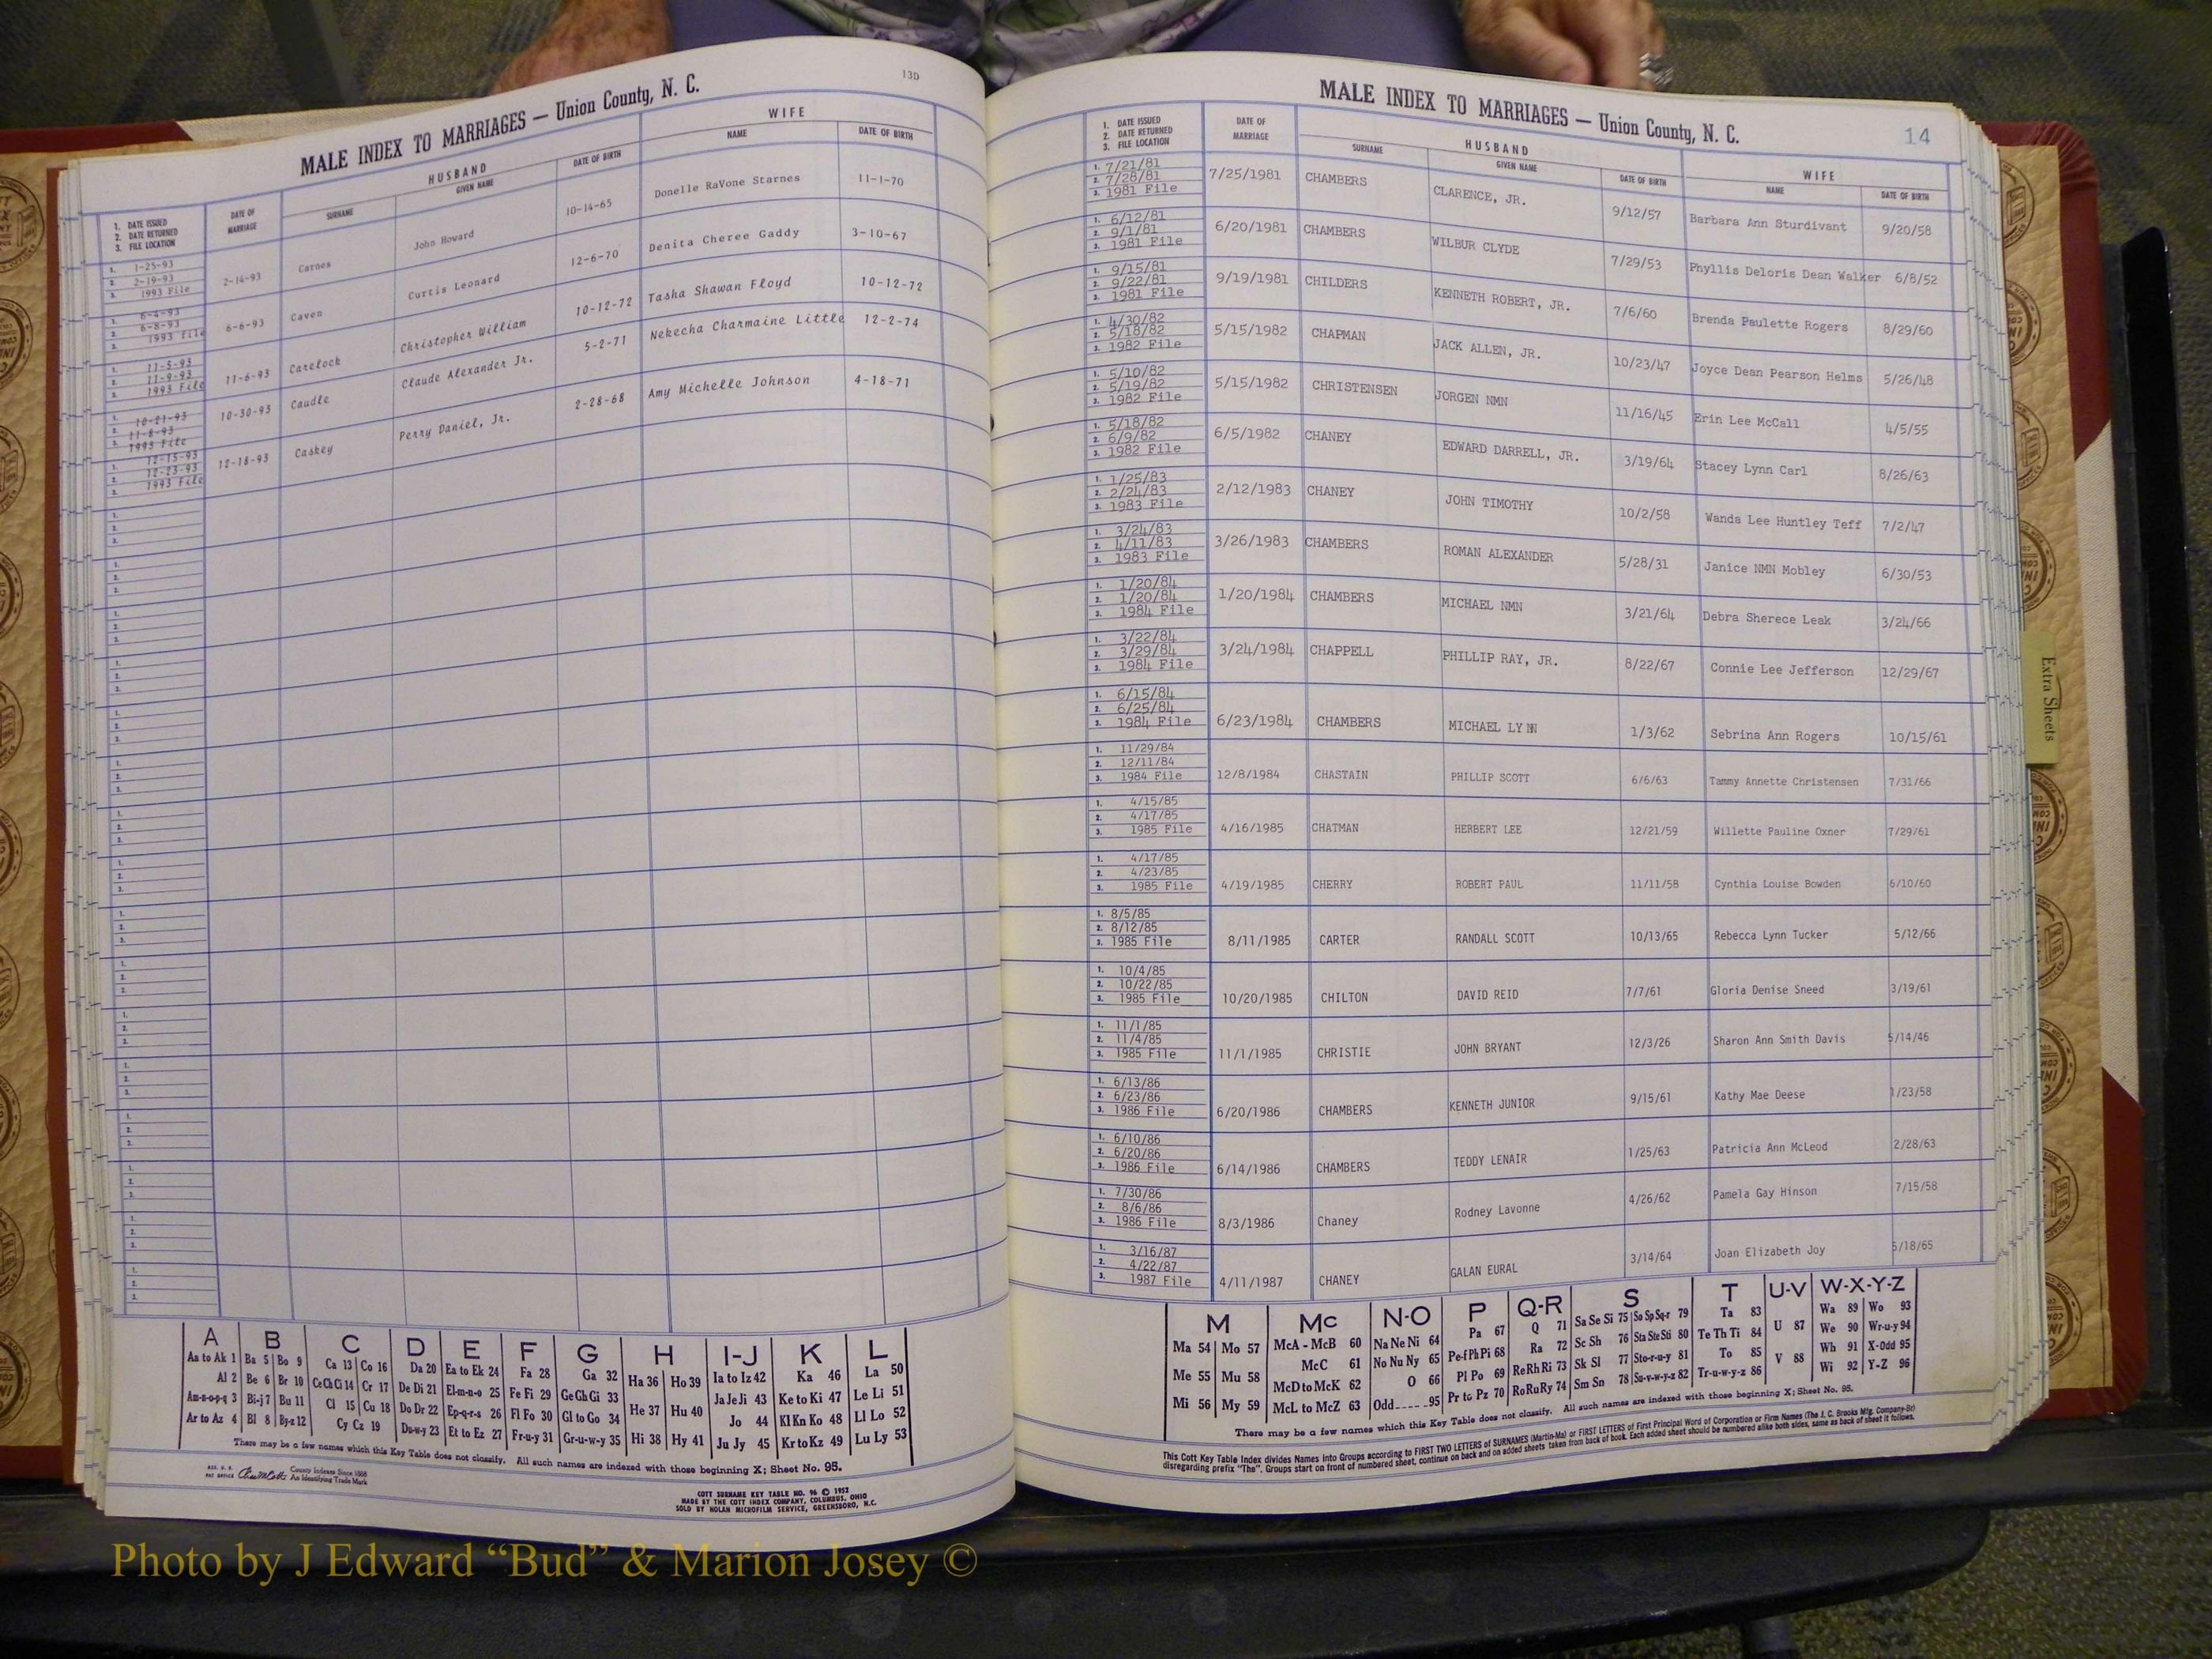 13D
MALE INDEX TO MARRIAGES — Union County, N. C.
1. DATE ISSUED
2. DATE RETURNED
3. FILE LOCATION
DATE OF MARRIAGE
HUSBAND
SURNAME
GIVEN NAME
DATE OF BIRTH
WIFE
NAME
DATE OF BIRTH
1. 1-25-93
2. 2-19-93
3. 1993 File
2-14-93 Carnes John Howard 10-14-65 Donelle RaVone Starnes 11-1-70
1. 6-4-93
2. 6-8-93
3. 1993 File
6-6-93 Caven Curtis Leonard 12-6-70 Denita Cheree Gaddy 3-10-67
1. 11-5-93
2. 11-9-93
3. 1993 File
11-6-93 Carelock Christopher William 10-12-72 Tasha Shawan Floyd 10-12-72
1. 10-21-93
2. 11-8-93
3. 1993 File
10-30-93 Caudle Claude Alexander Jr. 5-2-71 Nekecha Charmaine Little 12-2-74
1. 12-15-93
2. 12-23-93
3. 1993 File
12-18-93 Caskey Perry Daniel, Jr. 2-28-68 Amy Michelle Johnson 4-18-71
A B C D E F G H I-J K L
Aa to Ak 1 Ba 5 Bo 9 Ca 13 Co 16 Da 20 Ea to Ek 24 Fa 28 Ga 32 Ha 36 Ho 39 Ia to Iz 42 Ka 46 La 50
Al 2 Be 6 Br 10 Ce Ch Ci 14 Cr 17 De Di 21 El-m-n-o 25 Fe Fi 29 Ge Gh Gi 33 Ja Je Ji 43 Ke to Ki 47 Le Li 51
Am-n-o-p-q 3 Bi-j 7 Bu 11 Cl 15 Cu 18 Do Dr 22 Ep-q-r-s 26 Fl Fo 30 Gl to Go 34 He 37 Hu 40 Jo 44 Kl Kn Ko 48 Ll Lo 52
Ar to Az 4 Bl 8 By-z 12 Cy Cz 19 Du-w-y 23 Et to Ez 27 Fr-u-y 31 Gr-u-w-y 35 Hi 38 Hy 41 Ju Jy 45 Kr to Kz 49 Lu Ly 53
There may be a few names which this Key Table does not classify. All such names are indexed with those beginning X; Sheet No. 95.
County Indexes Since 1888
An Identifying Trade Mark
COTT SURNAME KEY TABLE NO. 96 © 1952
MADE BY THE COTT INDEX COMPANY, COLUMBUS, OHIO
SOLD BY NOLAN MICROFILM SERVICE, GREENSBORO, N.C.
MALE INDEX TO MARRIAGES — Union County, N. C.
14
1. DATE ISSUED
2. DATE RETURNED
3. FILE LOCATION
DATE OF MARRIAGE
HUSBAND
SURNAME
GIVEN NAME
DATE OF BIRTH
WIFE
NAME
DATE OF BIRTH
1. 7/21/81
2. 7/28/81
3. 1981 File
7/25/1981 CHAMBERS CLARENCE, JR. 9/12/57 Barbara Ann Sturdivant 9/20/58
1. 6/12/81
2. 9/1/81
3. 1981 File
6/20/1981 CHAMBERS WILBUR CLYDE 7/29/53 Phyllis Deloris Dean Walker 6/8/52
1. 9/15/81
2. 9/22/81
3. 1981 File
9/19/1981 CHILDERS KENNETH ROBERT, JR. 7/6/60 Brenda Paulette Rogers 8/29/60
1. 4/30/82
2. 5/18/82
3. 1982 File
5/15/1982 CHAPMAN JACK ALLEN, JR. 10/23/47 Joyce Dean Pearson Helms 5/26/48
1. 5/10/82
2. 5/19/82
3. 1982 File
5/15/1982 CHRISTENSEN JORGEN NMN 11/16/45 Erin Lee McCall 4/5/55
1. 5/18/82
2. 6/9/82
3. 1982 File
6/5/1982 CHANEY EDWARD DARRELL, JR. 3/19/64 Stacey Lynn Carl 8/26/63
1. 1/25/83
2. 2/24/83
3. 1983 File
2/12/1983 CHANEY JOHN TIMOTHY 10/2/58 Wanda Lee Huntley Teff 7/2/47
1. 3/24/83
2. 4/11/83
3. 1983 File
3/26/1983 CHAMBERS ROMAN ALEXANDER 5/28/31 Janice NMN Mobley 6/30/53
1. 1/20/84
2. 1/20/84
3. 1984 File
1/20/1984 CHAMBERS MICHAEL NMN 3/21/64 Debra Sherece Leak 3/24/66
1. 3/22/84
2. 3/29/84
3. 1984 File
3/24/1984 CHAPPELL PHILLIP RAY, JR. 8/22/67 Connie Lee Jefferson 12/29/67
1. 6/15/84
2. 6/25/84
3. 1984 File
6/23/1984 CHAMBERS MICHAEL LYNN 1/3/62 Sebrina Ann Rogers 10/15/61
1. 11/29/84
2. 12/11/84
3. 1984 File
12/8/1984 CHASTAIN PHILLIP SCOTT 6/6/63 Tammy Annette Christensen 7/31/66
1. 4/15/85
2. 4/17/85
3. 1985 File
4/16/1985 CHATMAN HERBERT LEE 12/21/59 Willette Pauline Oxner 7/29/61
1. 4/17/85
2. 4/23/85
3. 1985 File
4/19/1985 CHERRY ROBERT PAUL 11/11/58 Cynthia Louise Bowden 6/10/60
1. 8/5/85
2. 8/12/85
3. 1985 File
8/11/1985 CARTER RANDALL SCOTT 10/13/65 Rebecca Lynn Tucker 5/12/66
1. 10/4/85
2. 10/22/85
3. 1985 File
10/20/1985 CHILTON DAVID REID 7/7/61 Gloria Denise Sneed 3/19/61
1. 11/1/85
2. 11/4/85
3. 1985 File
11/1/1985 CHRISTIE JOHN BRYANT 12/3/26 Sharon Ann Smith Davis 5/14/46
1. 6/13/86
2. 6/23/86
3. 1986 File
6/20/1986 CHAMBERS KENNETH JUNIOR 9/15/61 Kathy Mae Deese 1/23/58
1. 6/10/86
2. 6/20/86
3. 1986 File
6/14/1986 CHAMBERS TEDDY LENAIR 1/25/63 Patricia Ann McLeod 2/28/63
1. 7/30/86
2. 8/6/86
3. 1986 File
8/3/1986 Chaney Rodney Lavonne 4/26/62 Pamela Gay Hinson 7/15/58
1. 3/16/87
2. 4/22/87
3. 1987 File
4/11/1987 CHANEY GALAN EURAL 3/14/64 Joan Elizabeth Joy 5/18/65
M Mc N-O P Q-R S T U-V W-X-Y-Z
Ma 54 Mo 57 McA - McB 60 Na Ne Ni 64 Pa 67 Q 71 Sa Se Si 75 So Sp Sq-r 79 Ta 83 U 87 Wa 89 Wo 93
McC 61 No Nu Ny 65 Pe-f Ph Pi 68 Ra 72 Sc Sh 76 Sta Ste Sti 80 Te Th Ti 84 We 90 Wr-u-y 94
Me 55 Mu 58 McD to McK 62 O 66 Pl Po 69 Re Rh Ri 73 Sk Sl 77 Sto-r-u-y 81 To 85 V 88 Wh 91 X-Odd 95
Mi 56 My 59 McL to McZ 63 Odd-----95 Pr to Pz 70 Ro Ru Ry 74 Sm Sn 78 Su-v-w-y-z 82 Tr-u-w-y-z 86 Wi 92 Y-Z 96
There may be a few names which this Key Table does not classify. All such names are indexed with those beginning X; Sheet No. 95.
This Cott Key Table Index divides Names into Groups according to FIRST TWO LETTERS of SURNAMES (Martin-Ma) or FIRST LETTERS of First Principal Word of Corporation or Firm Names (The J. C. Brooks Mfg. Company-Br)
disregarding prefix "The". Groups start on front of numbered sheet, continue on back and on added sheets taken from back of book. Each added sheet should be numbered alike both sides, same as back of sheet it follows.
Extra Sheets
Photo by J Edward “Bud” & Marion Josey ©